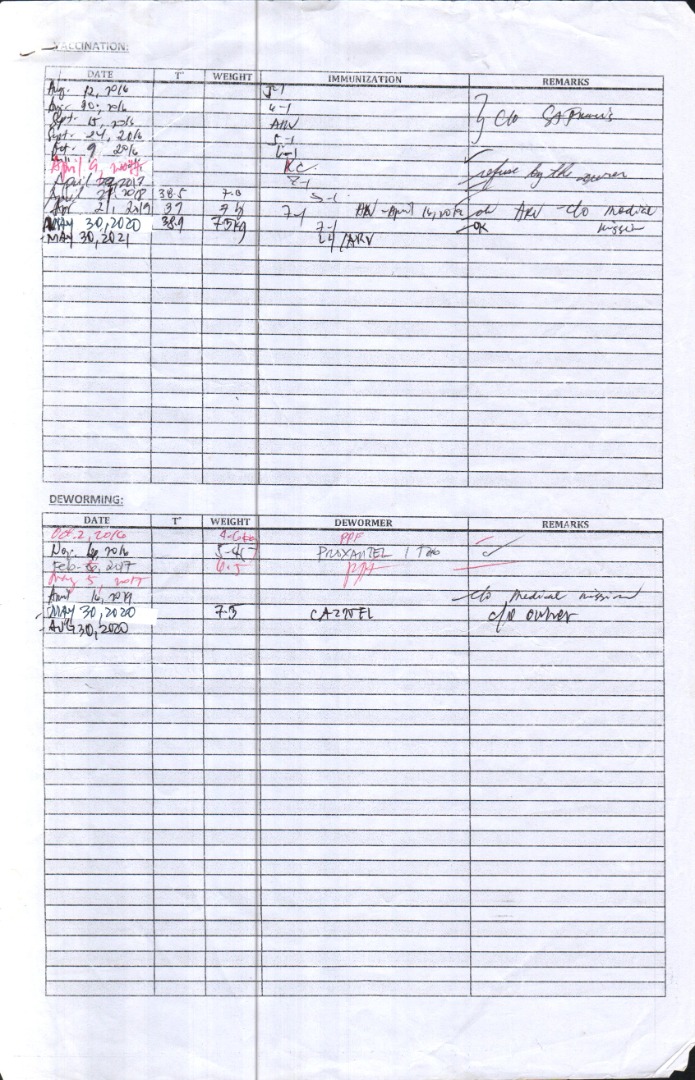 VACCINATION:
DATE T° WEIGHT IMMUNIZATION REMARKS
Aug. 12, 2016 5-1
Aug. 30, 2016 6-1
Sept. 15, 2016 ARV } c/o
Sept. 24, 2016 5-1
Oct. 9, 2016 6-1
April 9, KC
April 2017 refuse by the owner
April 21, 2018 38.5 7.0 5-1
Apr 21, 2019 37 7-1 ARV - April 16, 2019 ok ARV - c/o medical mission
MAY 30, 2020 38.9 7.5kg 7-1 OK
MAY 30, 2021 /ARV
DEWORMING:
DATE T° WEIGHT DEWORMER REMARKS
Oct. 2, 2016 PPF
Nov. 6, 2016 PROXANTEL 1 Tab
Feb. 2017 6.5
May 5, 2017
April 16, 2019 c/o medical mission
MAY 30, 2020 7.5 CAZITEL c/o owner
AUG 30, 2020